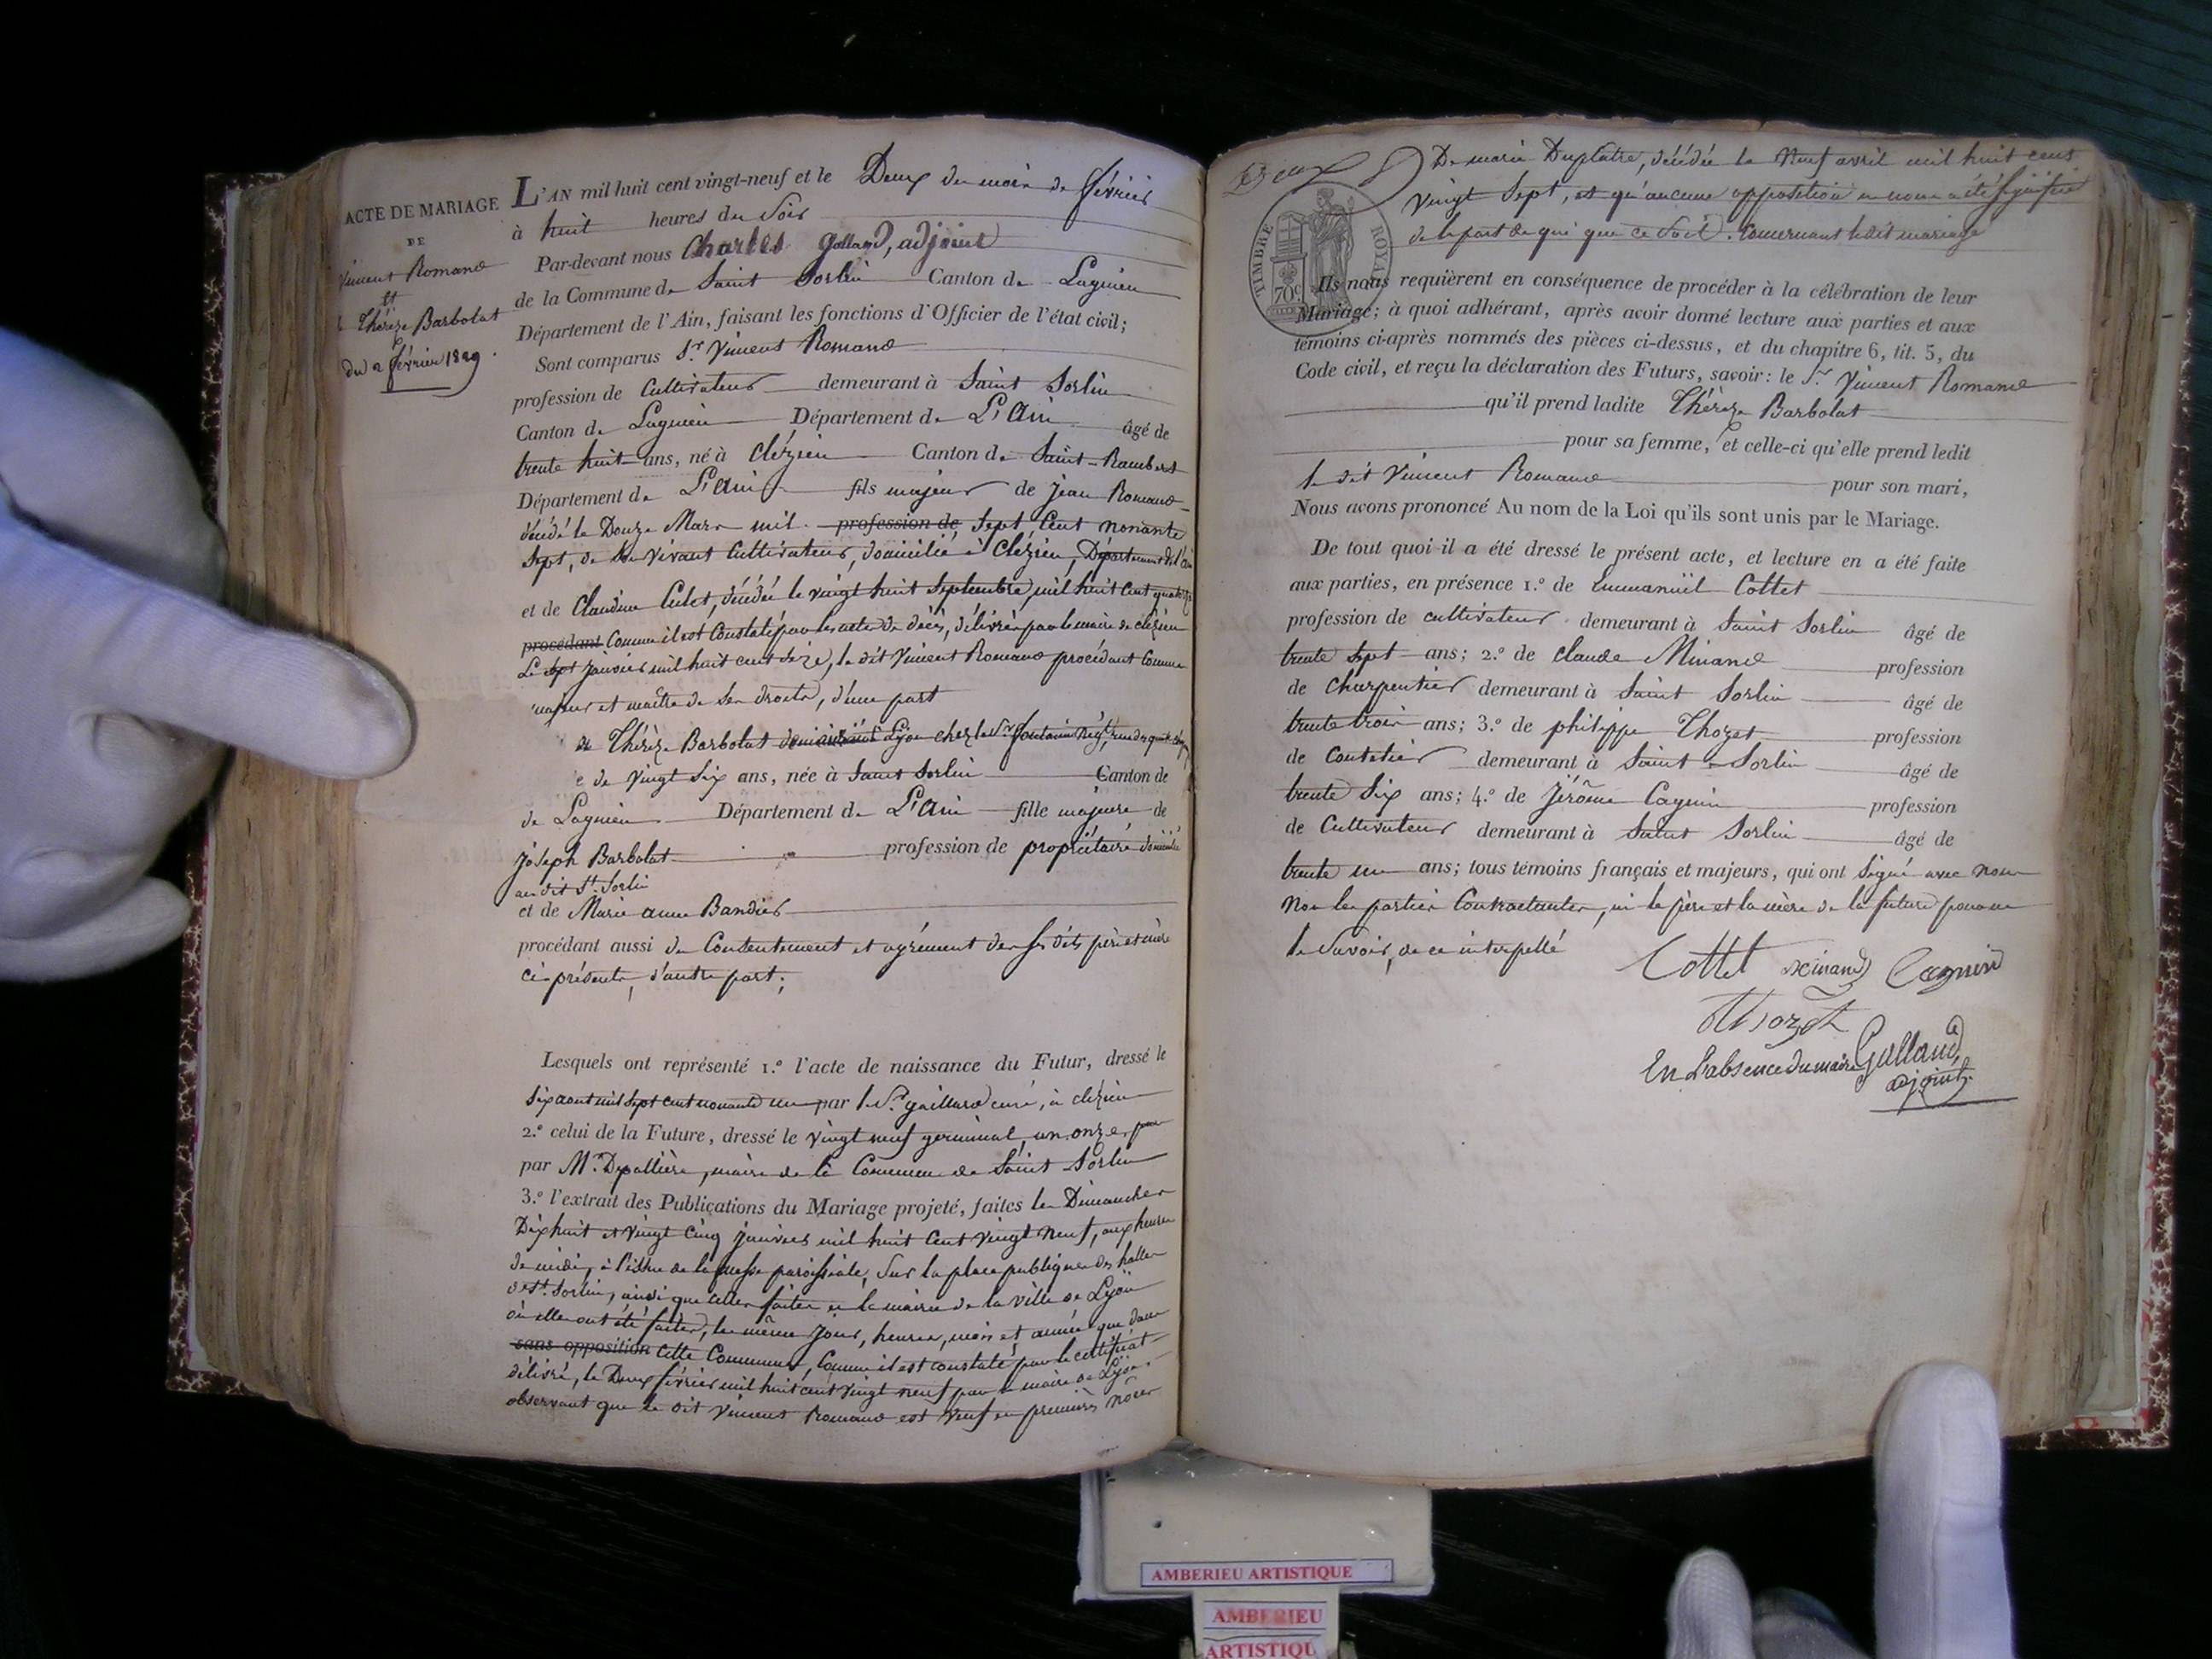 ACTE DE MARIAGE
DE
Vincent Romand
et
Thérèze Barbolat
du 2 février 1829.
L'AN mil huit cent vingt-neuf et le Deux du mois de février
à huit heures du Soir
Par-devant nous Charles Golland, adjoint
de la Commune de Saint Sorlin Canton de Lagnieu
Département de l'Ain, faisant les fonctions d'Officier de l'état civil;
Sont comparus Sr. Vincent Romand
profession de Cultivateur demeurant à Saint Sorlin
Canton de Lagnieu Département de L'Ain âgé de
trente huit ans, né à Clézieu Canton de Saint-Rambert
Département de L'ain fils majeur de Jean Romand
décédé le Douze Mars mil profession de Sept Cent nonante
Sept, de Son Vivant Cultivateur, domicilié à Clézieu, Département de l'ain
et de Claudine Culet, décédée le vingt huit Septembre mil huit Cent quatorze
procédant Comme il est Constaté par les actes de décès, délivrés par le maire de clézieu
Le Sept Janvier mil huit cent Seize, le dit Vincent Romand procédant Comme
majeur et maître de Ses droits, d'une part
et Thérèze Barbolat à Lyon chez le Sr. fontaine
e de vingt Six ans, née à Saint Sorlin Canton de
de Lagnieu Département de L'Ain fille majeure de
Joseph Barbolat profession de propriétaire domicilié
au dit St. Sorlin
et de Marie anne Bandier
procédant aussi du Consentement et agrément de Ses dits père et mère
ci-présents, d'autre part;
Lesquels ont représenté 1.º l'acte de naissance du Futur, dressé le
Six aout mil Sept cent nonante un par le Sr. gaillard curé, à clézieu
2.º celui de la Future, dressé le vingt neuf germinal an onze, par
par Mr. Depallière, maire de la Commune de Saint Sorlin
3.º l'extrait des Publications du Mariage projeté, faites les Dimanches
Dix huit et vingt Cinq janvier mil huit Cent vingt neuf, aux heures
de midi, à l'issue de la messe paroissiale, Sur la place publique des halles
de St. Sorlin, ainsi que celles faites à la mairie de la ville de Lyon
où elles ont été faites, les même Jour, heures, mois et année que dans
sans opposition cette Commune, Comme il est constaté par le certificat
délivré, le Deux février mil huit cent vingt neuf par le maire de Lyon.
observant que le dit Vincent Romand est Veuf en premières nôces
De marie Duplatre, décédée le Neuf avril mil huit cent
vingt Sept, et qu'aucune opposition ne nous a été Signifiée
de la part de qui que ce Soit. Concernant le dit mariage
TIMBRE ROYAL
70c
Ils nous requièrent en conséquence de procéder à la célébration de leur
Mariage; à quoi adhérant, après avoir donné lecture aux parties et aux
témoins ci-après nommés des pièces ci-dessus, et du chapitre 6, tit. 5, du
Code civil, et reçu la déclaration des Futurs, savoir: le Sr. Vincent Romand
qu'il prend ladite Thérèze Barbolat
pour sa femme, et celle-ci qu'elle prend ledit
le dit Vincent Romand pour son mari,
Nous avons prononcé Au nom de la Loi qu'ils sont unis par le Mariage.
De tout quoi il a été dressé le présent acte, et lecture en a été faite
aux parties, en présence 1.º de Emmanuël Cottet
profession de cultivateur demeurant à Saint Sorlin âgé de
trente Sept ans; 2.º de Claude Minand profession
de Charpentier demeurant à Saint Sorlin âgé de
trente trois ans; 3.º de philippe Thozet profession
de Coutelier demeurant à Saint Sorlin âgé de
trente Six ans; 4.º de Jérôme Cagnin profession
de Cultivateur demeurant à Saint Sorlin âgé de
trente un ans; tous témoins français et majeurs, qui ont Signé avec nous
Non les parties Contractantes, ni le père et la mère de la future pour ne
le Savoir, de ce interpellé
Cottet Minand Cagnin
Thozet
En L'absence du maire Golland
adjoint
AMBERIEU ARTISTIQUE
AMBERIEU
ARTISTIQU